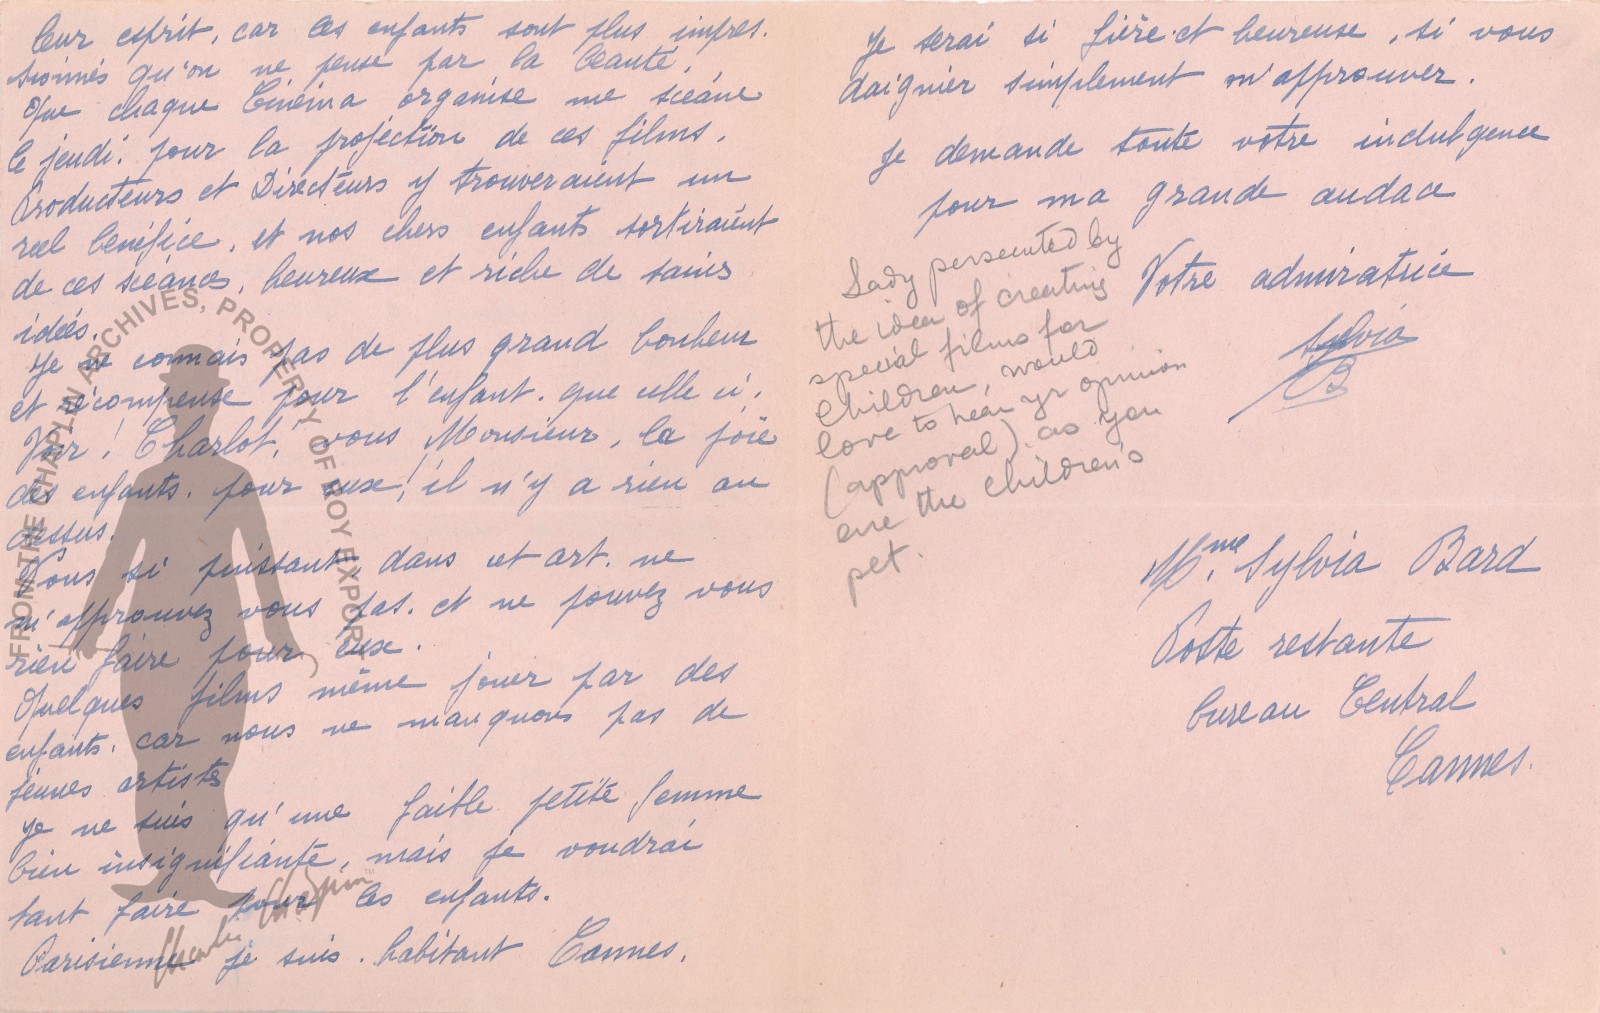 leur esprit, car ces enfants sont plus impres.
sionnés qu'on ne pense par la beauté.
Que chaque Cinéma organise une scéane
le jeudi. pour la projection de ces films.
Producteurs et Directeurs y trouveraient un
réel bénéfice, et nos chers enfants sortiraient
de ces scéances, heureux et riche de saines
idées.
Je ne connais pas de plus grand bonheur
et récompense pour l'enfant. que celle ci.
Voir! Charlot, vous Monsieur, la joie
des enfants. pour eux! il n'y a rien au
dessus.
Vous si puissant, dans cet art. ne
m'approuvez vous pas. et ne pouvez vous
rien faire pour eux.
Quelques films même jouer par des
enfants. car nous ne manquons pas de
jeunes artistes
Je ne suis qu'une faible petite femme
bien insignifiante, mais je voudrai
tant faire pour les enfants.
Parisienne je suis. habitant Cannes.
Je serai si fière et heureuse, si vous
daignier simplement m'approuver.
Je demande toute votre indulgence
pour ma grande audace
Votre admiratrice
Sylvia
B
Lady persecuted by
the idea of creating
special films for
children, would
love to hear yr opinion
(approval). as you
are the children's
pet.
Mme. Sylvia Bard
Poste restante
bureau Central
Cannes.
FROM THE CHAPLIN ARCHIVES, PROPERTY OF ROY EXPORT
Charlie Chaplin™